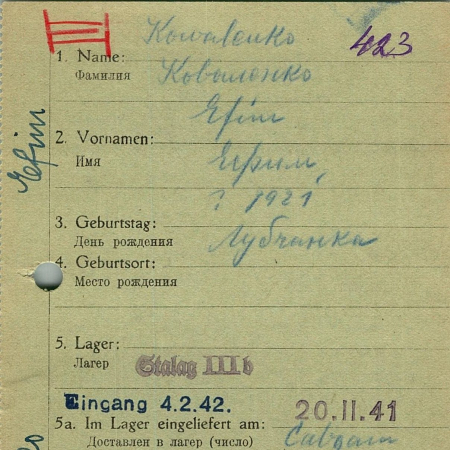 Kowalenko
423
1. Name:
Коваленко
Фамилия
Efim
Efim
2. Vornamen:
Ефим
Имя
? 1921
3. Geburtstag:
День рождения
Лубчанка
4. Geburtsort:
Место рождения
5. Lager:
Лагер
Stalag III b
Eingang 4.2.42.
20.II.41
5a. Im Lager eingeliefert am:
Доставлен в лагер (число)